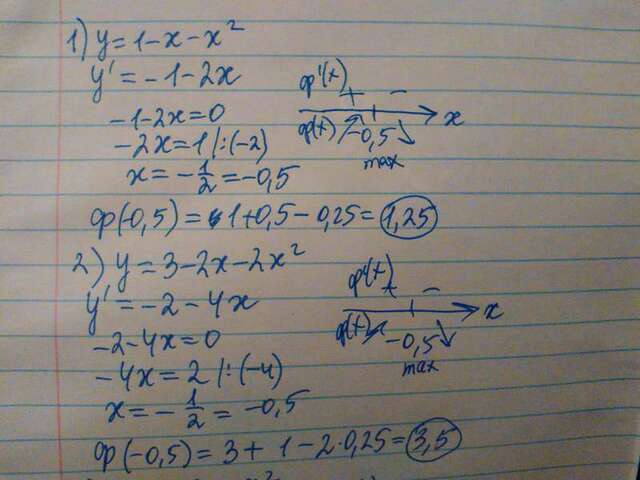 1) y = 1 - x - x²
y' = -1 - 2x
-1 - 2x = 0
-2x = 1 | : (-2)
x = -1/2 = -0,5
φ'(x) + -
φ(x) ↗ -0,5 ↘ x
max
φ(-0,5) = 1 + 0,5 - 0,25 = 1,25
2) y = 3 - 2x - 2x²
y' = -2 - 4x
-2 - 4x = 0
-4x = 2 | : (-4)
x = -1/2 = -0,5
φ'(x) + -
φ(x) ↗ -0,5 ↘ x
max
φ(-0,5) = 3 + 1 - 2·0,25 = 3,5